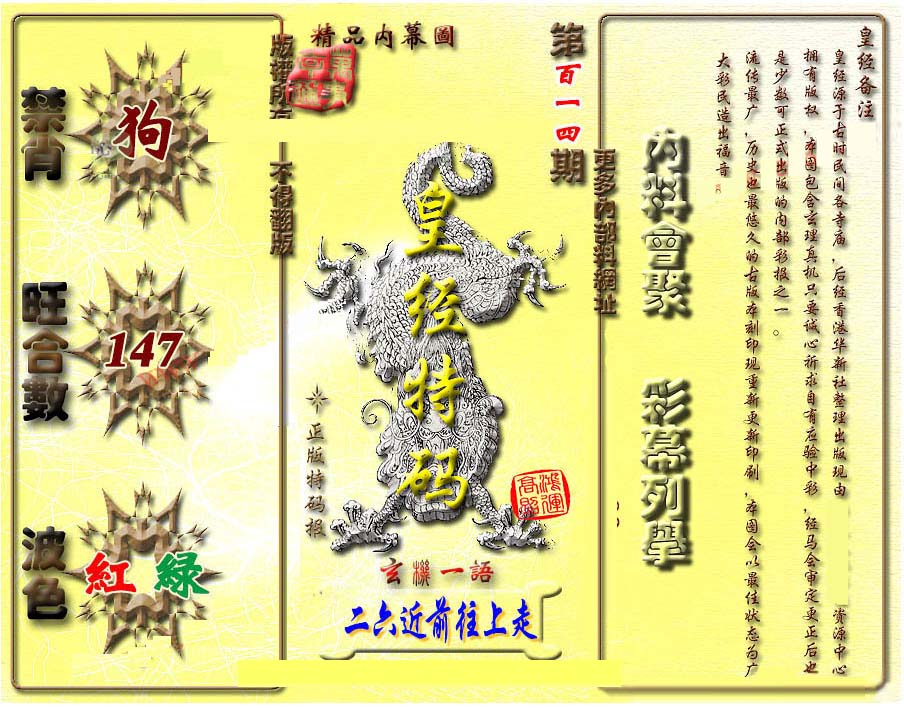 精品内幕圖
第百一四期
版權所有
不得翻版
更多内部料網址
禁肖
狗
旺合數
147
波色
紅 綠
皇经特码
正版特码报
鴻運高照
玄機一語
二六近前往上走
内料會聚
彩幕列舉
皇经备注
皇经源于古时民间各寺庙，后经香港华新社整理出版现由 资源中心
拥有版权，本图包含玄理真机只要诚心祈求自有应验中彩，经马会审定更正后也
是少数可正式出版的内部彩报之一。
流传最广，历史也最悠久的古版本刻印现重新更新印刷，本图会以最佳状态为广
大彩民造出福音